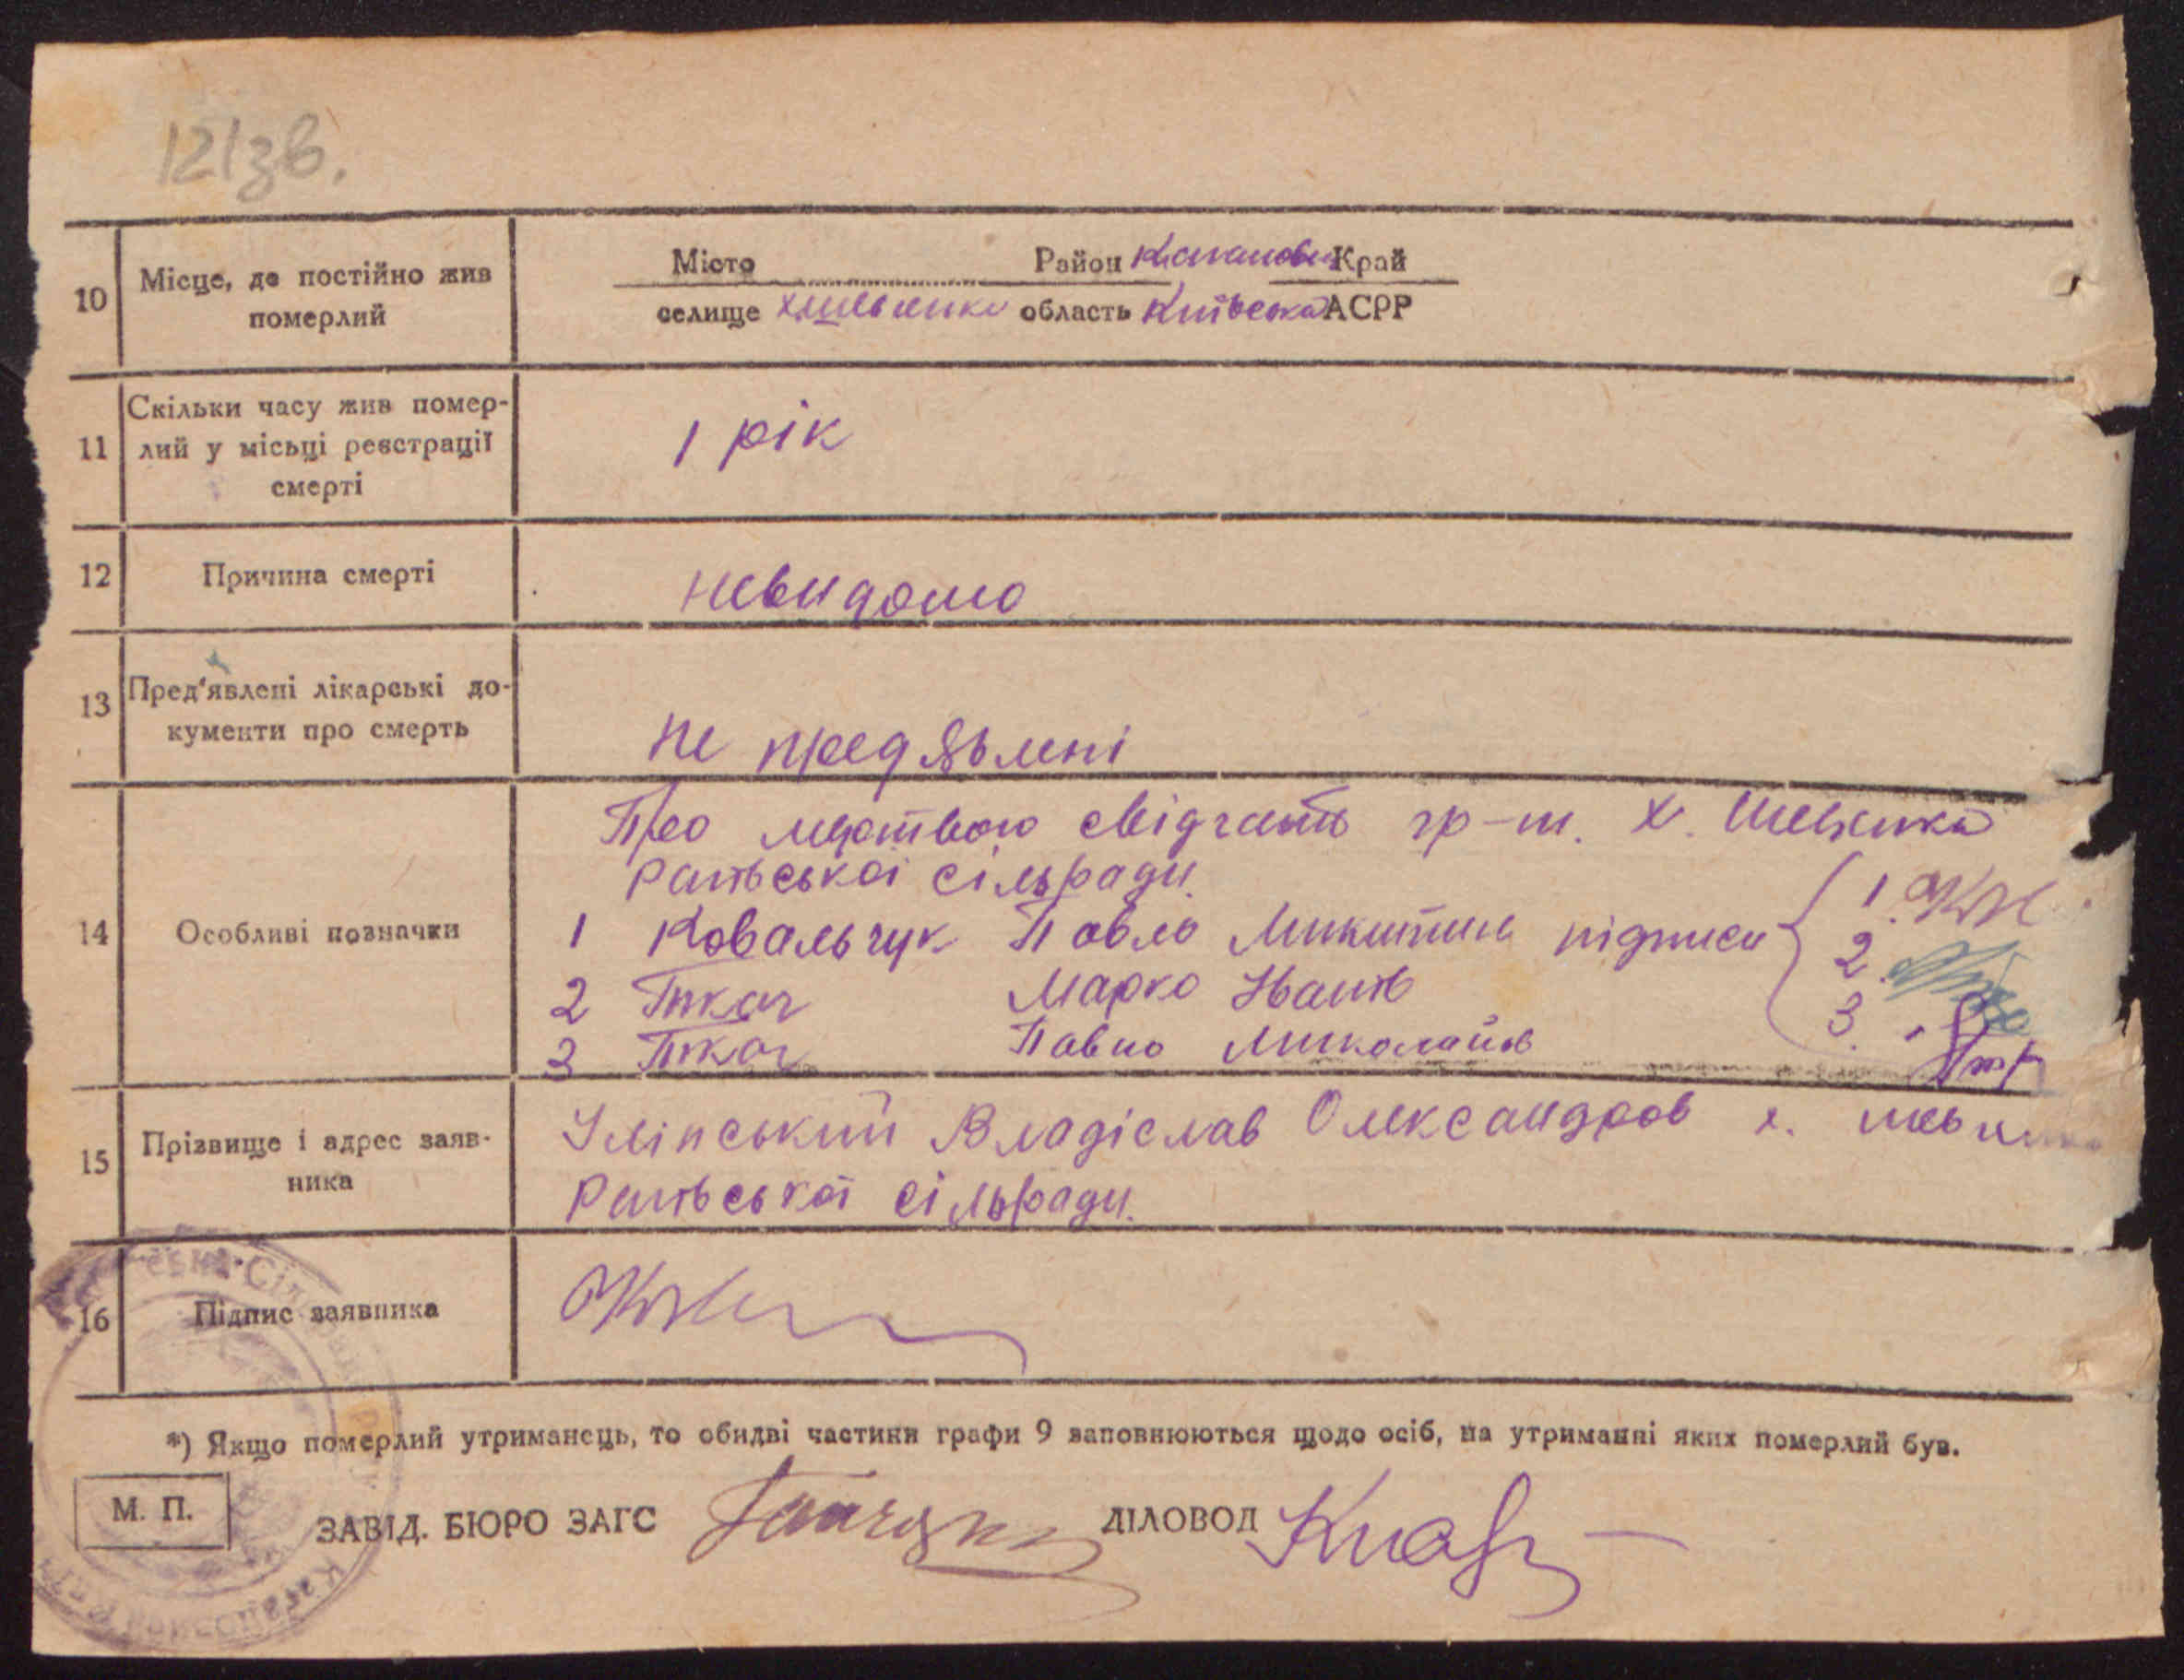 121зв.
10 Місце, де постійно жив померлий
Місто Район Край
селище область Київська АСРР
11 Скільки часу жив помер-
лий у місьці реєстрації
смерті
1 рік
12 Причина смерті
невидомо
13 Пред'явлені лікарські до-
кументи про смерть
не предявлені
14 Особливі позначки
Про свідчать гр-ни. х.
сільради
1 Ковальчук Павло Микитин підписи 1.
2 Ткач Марко Іванів 2.
3 Ткач Павло Миколаїв 3.
15 Прізвище і адрес заяв-
ника
Улінський Владіслав Олександров х.
сільради.
16 Підпис заявника
*) Якщо померлий утриманець, то обидві частини графи 9 заповнюються щодо осіб, на утриманні яких померлий був.
М. П. ЗАВІД. БЮРО ЗАГС ДІЛОВОД